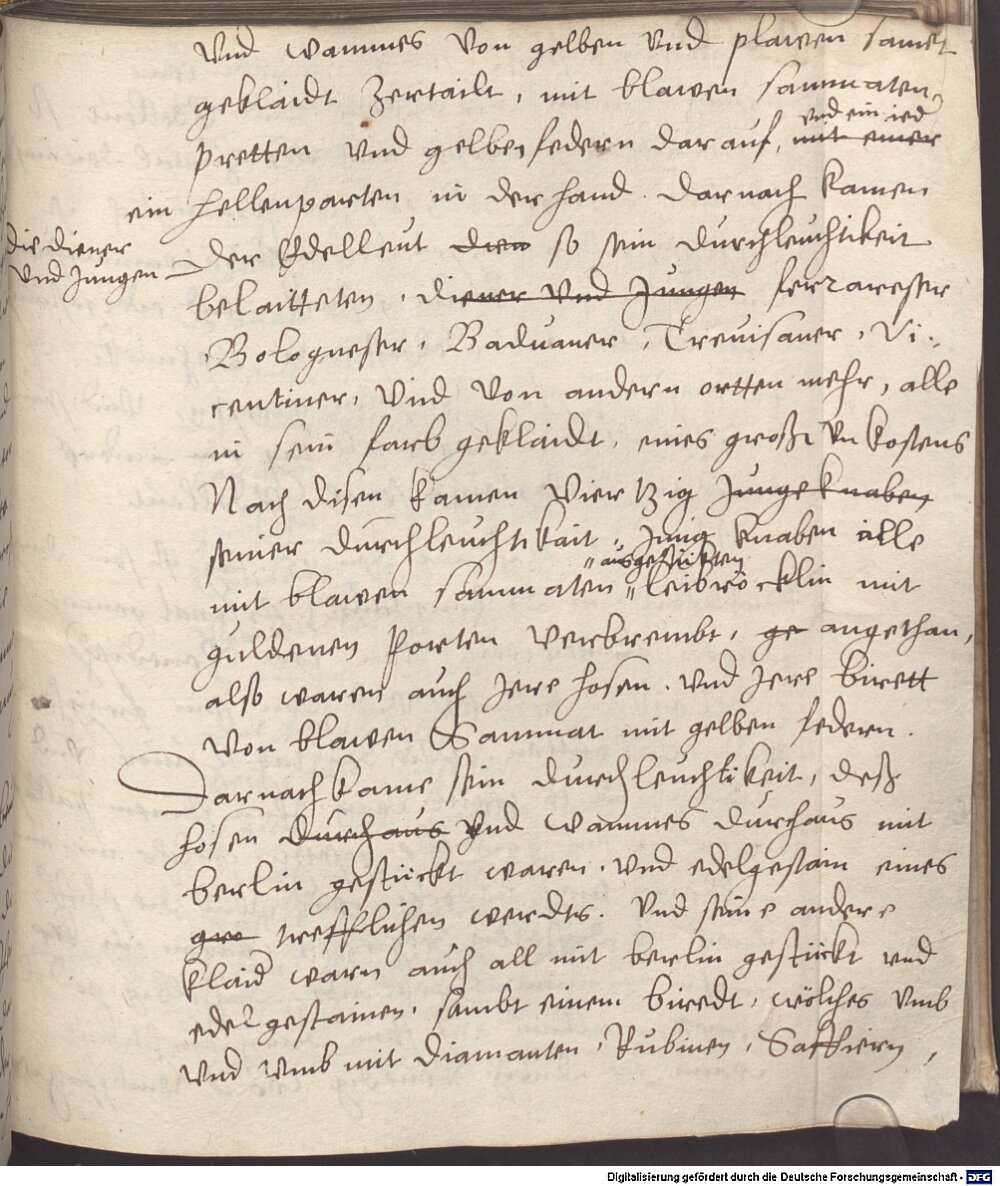 Vnd wammes von gelben vnd plawen samet
geklaidt Zertailt, mit blawen sammaten
pretten vnd gelben federn darauf, mit einer
vnd ein ied
ein hellenparten in der hand. Darnach kamen
die diener
vnd Jungen
der Edelleut so sein durchleuchtikeit
belaitteten, diener vnd Jungen ferrareser
Bologneser, Baduaner, Treuisaner, Vi-
centiner, Vnd von andern ortten mehr, alle
in sein farb geklaidt, eines große Vnkostens
Nach disen kamen Viertzig Junge knaben
seiner durchleuchtikait, Jung knaben alle
ausgestükten
mit blawen sammaten leibröcklin mit
guldenen Porten verbrembt, ge angethan,
also waren auch Jere hosen. vnd Jere birett
von blawen Sammat mit gelben federn.
Darnach kame sein durchleuchtikeit, deß
hosen durchaus vnd wammes durchaus mit
berlin gestückt waren. vnd edelgestain eines
gro trefflichen werdts. Vnd seine andere
klaid warn auch all mit berlin gestückt vnd
edelgestainen. sambt einem biredt, wölches vmb
vnd vmb mit Diamanten, Rubinen, Saffiern,
Digitalisierung gefördert durch die Deutsche Forschungsgemeinschaft - DFG